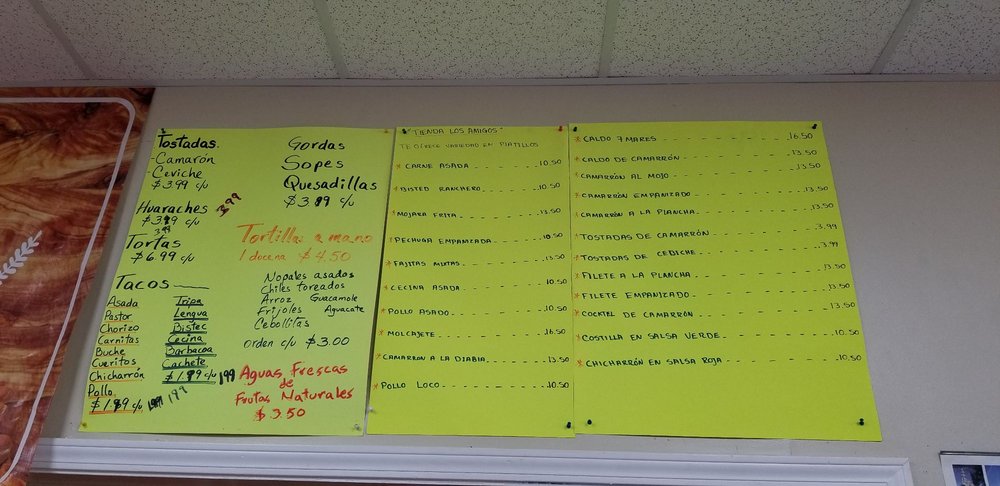 Tostadas.
-Camarón
-Ceviche
$3.99 c/u
Huaraches 3.99
$3.99 c/u
3.99
Tortas
$6.99 c/u
Tacos
Asada
Pastor
Chorizo
Carnitas
Buche
Cueritos
Chicharrón
Pollo
$1.99 c/u 1.99 199
Tripa
Lengua
Bistec
Cecina
Barbacoa
Cachete
$1.99 c/u 199
Gordas
Sopes
Quesadillas
$3.99 c/u
Tortillas a mano
1 docena $4.50
Nopales asados
Chiles toreados
Arroz Guacamole
Frijoles Aguacate
Cebollitas
orden c/u $3.00
Aguas Frescas
de
Frutas Naturales
$3.50
"TIENDA LOS AMIGOS"
TE OFRECE VARIEDAD EN PLATILLOS
*CARNE ASADA 10.50
*BISTED RANCHERO 10.50
*MOJARA FRITA 13.50
*PECHUGA EMPANIZADA 10.50
*FAJITAS MIXTAS 13.50
*CECINA ASADA 10.50
*POLLO ASADO 10.50
*MOLCAJETE 16.50
*CAMARRON A LA DIABIA 13.50
*POLLO LOCO 10.50
*CALDO 7 MARES 16.50
*CALDO DE CAMARRÓN 13.50
*CAMARRÓN AL MOJO 13.50
*CAMARRÓN EMPANIZADO 13.50
*CAMARRÓN A LA PLANCHA 13.50
*TOSTADAS DE CAMARRÓN 3.99
*TOSTADAS DE CEDICHE 3.99
*FILETE A LA PLANCHA 13.50
*FILETE EMPANIZADO 13.50
*COCKTEL DE CAMARRÓN 13.50
*COSTILLA EN SALSA VERDE 10.50
*CHICHARRÓN EN SALSA ROJA 10.50